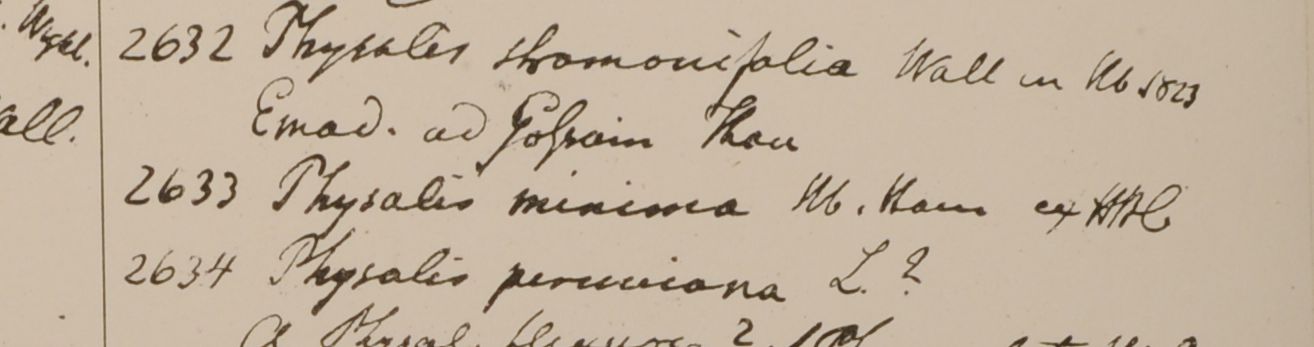 Wight.
2632 Physalis stramonifolia Wall in Hb 1823
all.
Emod. ad Gossain Than
2633 Physalis minima Hb. Ham ex HBC
2634 Physalis peruviana L. ?